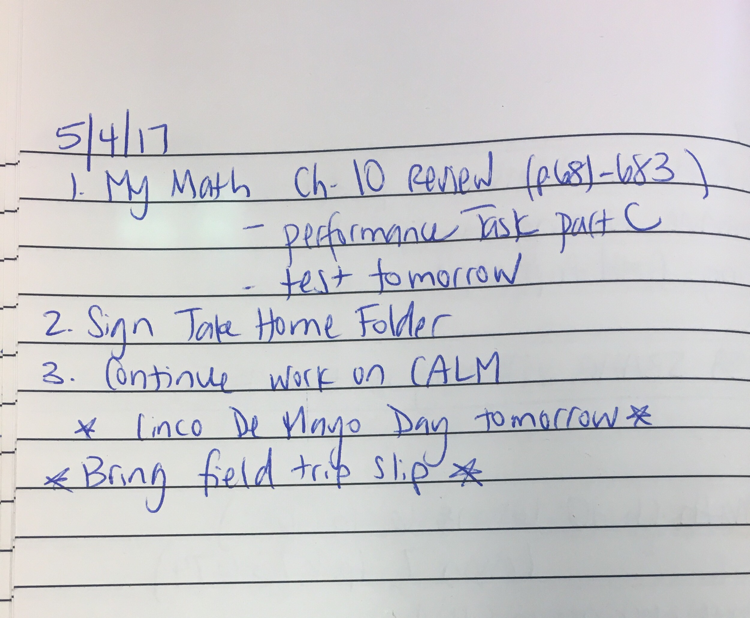 5/4/17
1. My Math Ch. 10 Review (p681-683)
- performance Task part C
- test tomorrow
2. Sign Take Home Folder
3. Continue work on CALM
* Cinco De Mayo Day tomorrow *
* Bring field trip slip *